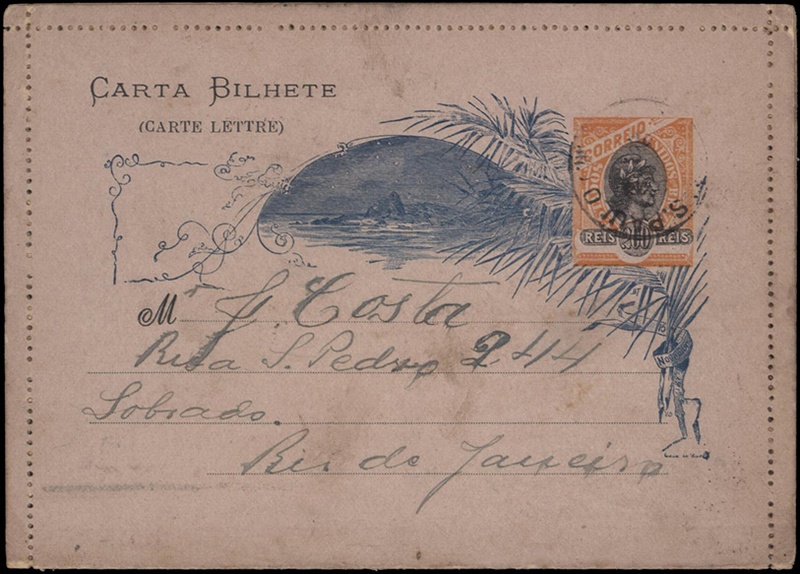 CARTA BILHETE
(CARTE LETTRE)
CORREIO
REIS 300 REIS
S. PAULO
Mr J. Costa
Rua S. Pedro 244
Sobrado.
Rio de Janeiro